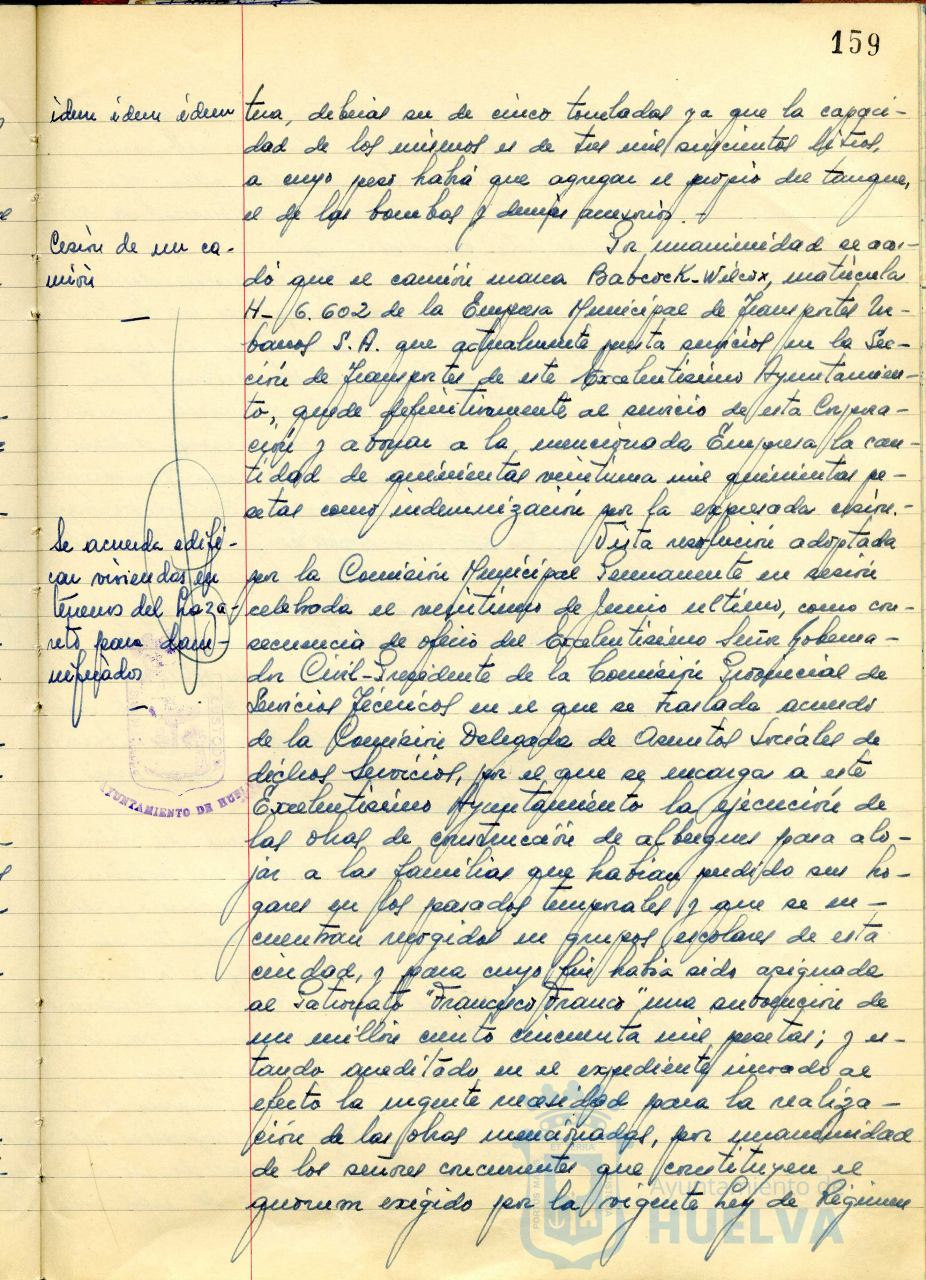 159
idem idem idem
tura, deberias ser de cinco toneladas ya que la capaci-
dad de los mismos es de tres mil seiscientos litros,
a cuyo peso habrá que agregar el propio del tanque,
el de las bombas y demás accesorios. -
Cesión de un ca-
mión
Por unanimidad se acor-
dó que el camión marca Babcock-Wilcox, matrícula
H- 6.602 de la Empresa Municipal de Transportes Ur-
banos S.A. que actualmente presta servicios en la Sec-
ción de Transportes de este Excelentísimo Ayuntamien-
to, quede definitivamente al servicio de esta Corpora-
ción y abonar a la mencionada Empresa la can-
tidad de quinientas veintiuna mil quinientas pe-
setas como indemnización por la expresada cesión.-
Se acuerda edifi-
car viviendas en
terrenos del Laza-
reto para dam-
nificados
Vista resolución adoptada
por la Comisión Municipal Permanente en sesión
celebrada el veintiuno de Junio último, como con-
secuencia de oficio del Excelentísimo Señor Goberna-
dor Civil-Presidente de la Comisión Provincial de
Servicios Técnicos en el que se traslada acuerdo
de la Comisión Delegada de Asuntos Sociales de
dichos Servicios, por el que se encarga a este
Excelentísimo Ayuntamiento la ejecución de
las obras de construcción de albergues para alo-
jar a las familias que habían perdido sus ho-
gares en los pasados temporales y que se en-
cuentran recogidos en grupos escolares de esta
ciudad, y para cuyo fin había sido asignada
al Patronato "Francisco Franco" una subvención de
un millón ciento cincuenta mil pesetas; y es-
tando acreditado en el expediente incoado al
efecto la urgente necesidad para la realiza-
ción de las obras mencionadas, por unanimidad
de los señores concurrentes que constituyen el
quorum exigido por la vigente Ley de Régimen
AYUNTAMIENTO DE HUELVA
Ayuntamiento de
HUELVA